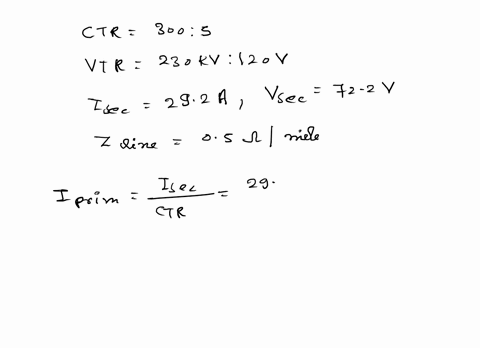 CTR = 300:5
VTR = 230 KV : 120 V
Isec = 29.2 A, Vsec = 72.2 V
Z line = 0.5 Ω | mile
I prim = Isec / CTR = 29.